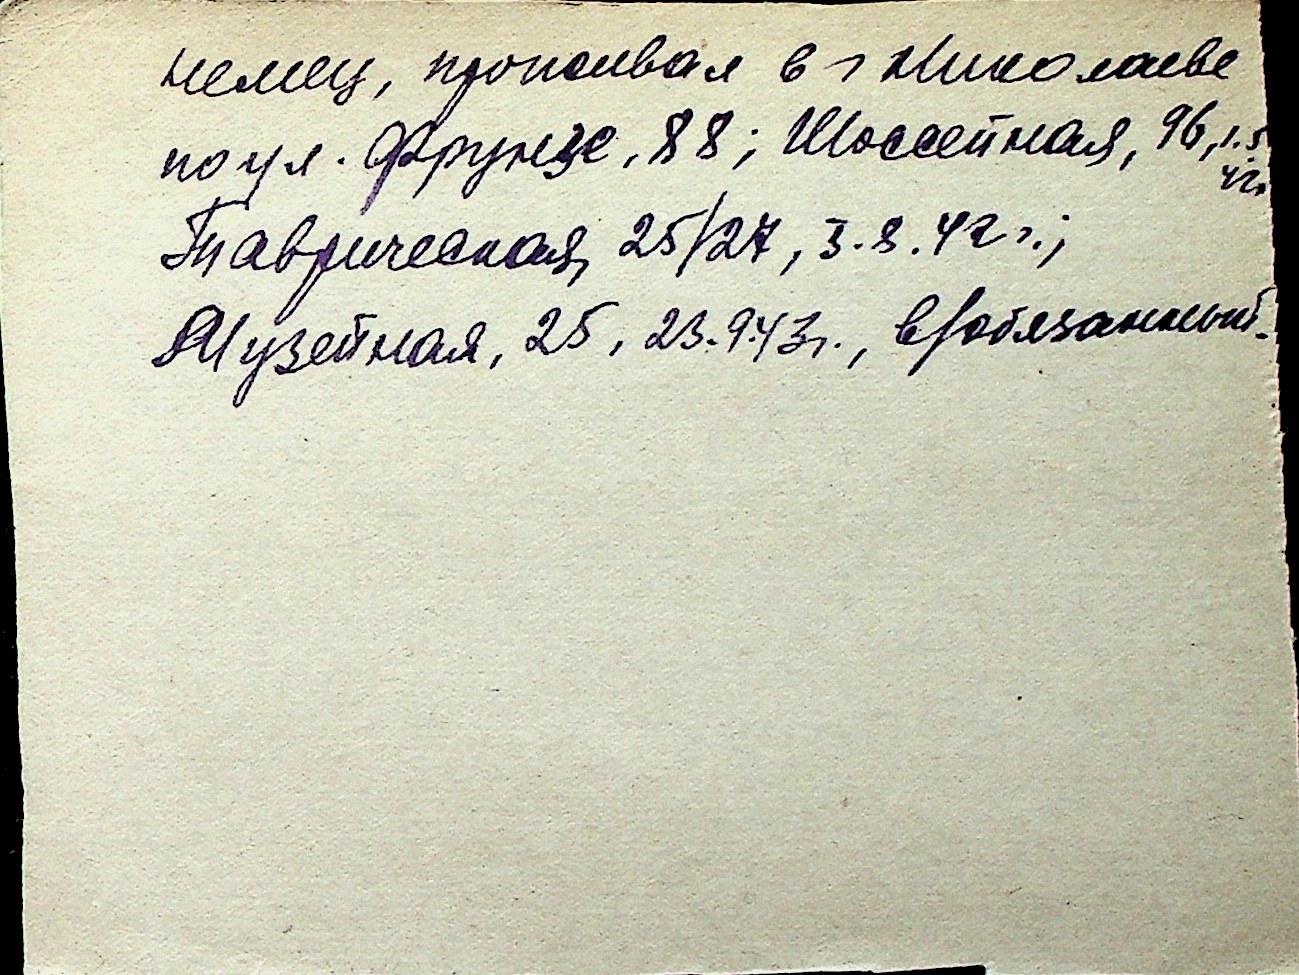 немец, проживал в г Николаеве
по ул. Фрунзе, 88; Шоссейная, 96, 1.5.
42г.
Таврическая, 25/27, 3.8.42г.;
Музейная, 25, 23.9.43г., в/обязанный.